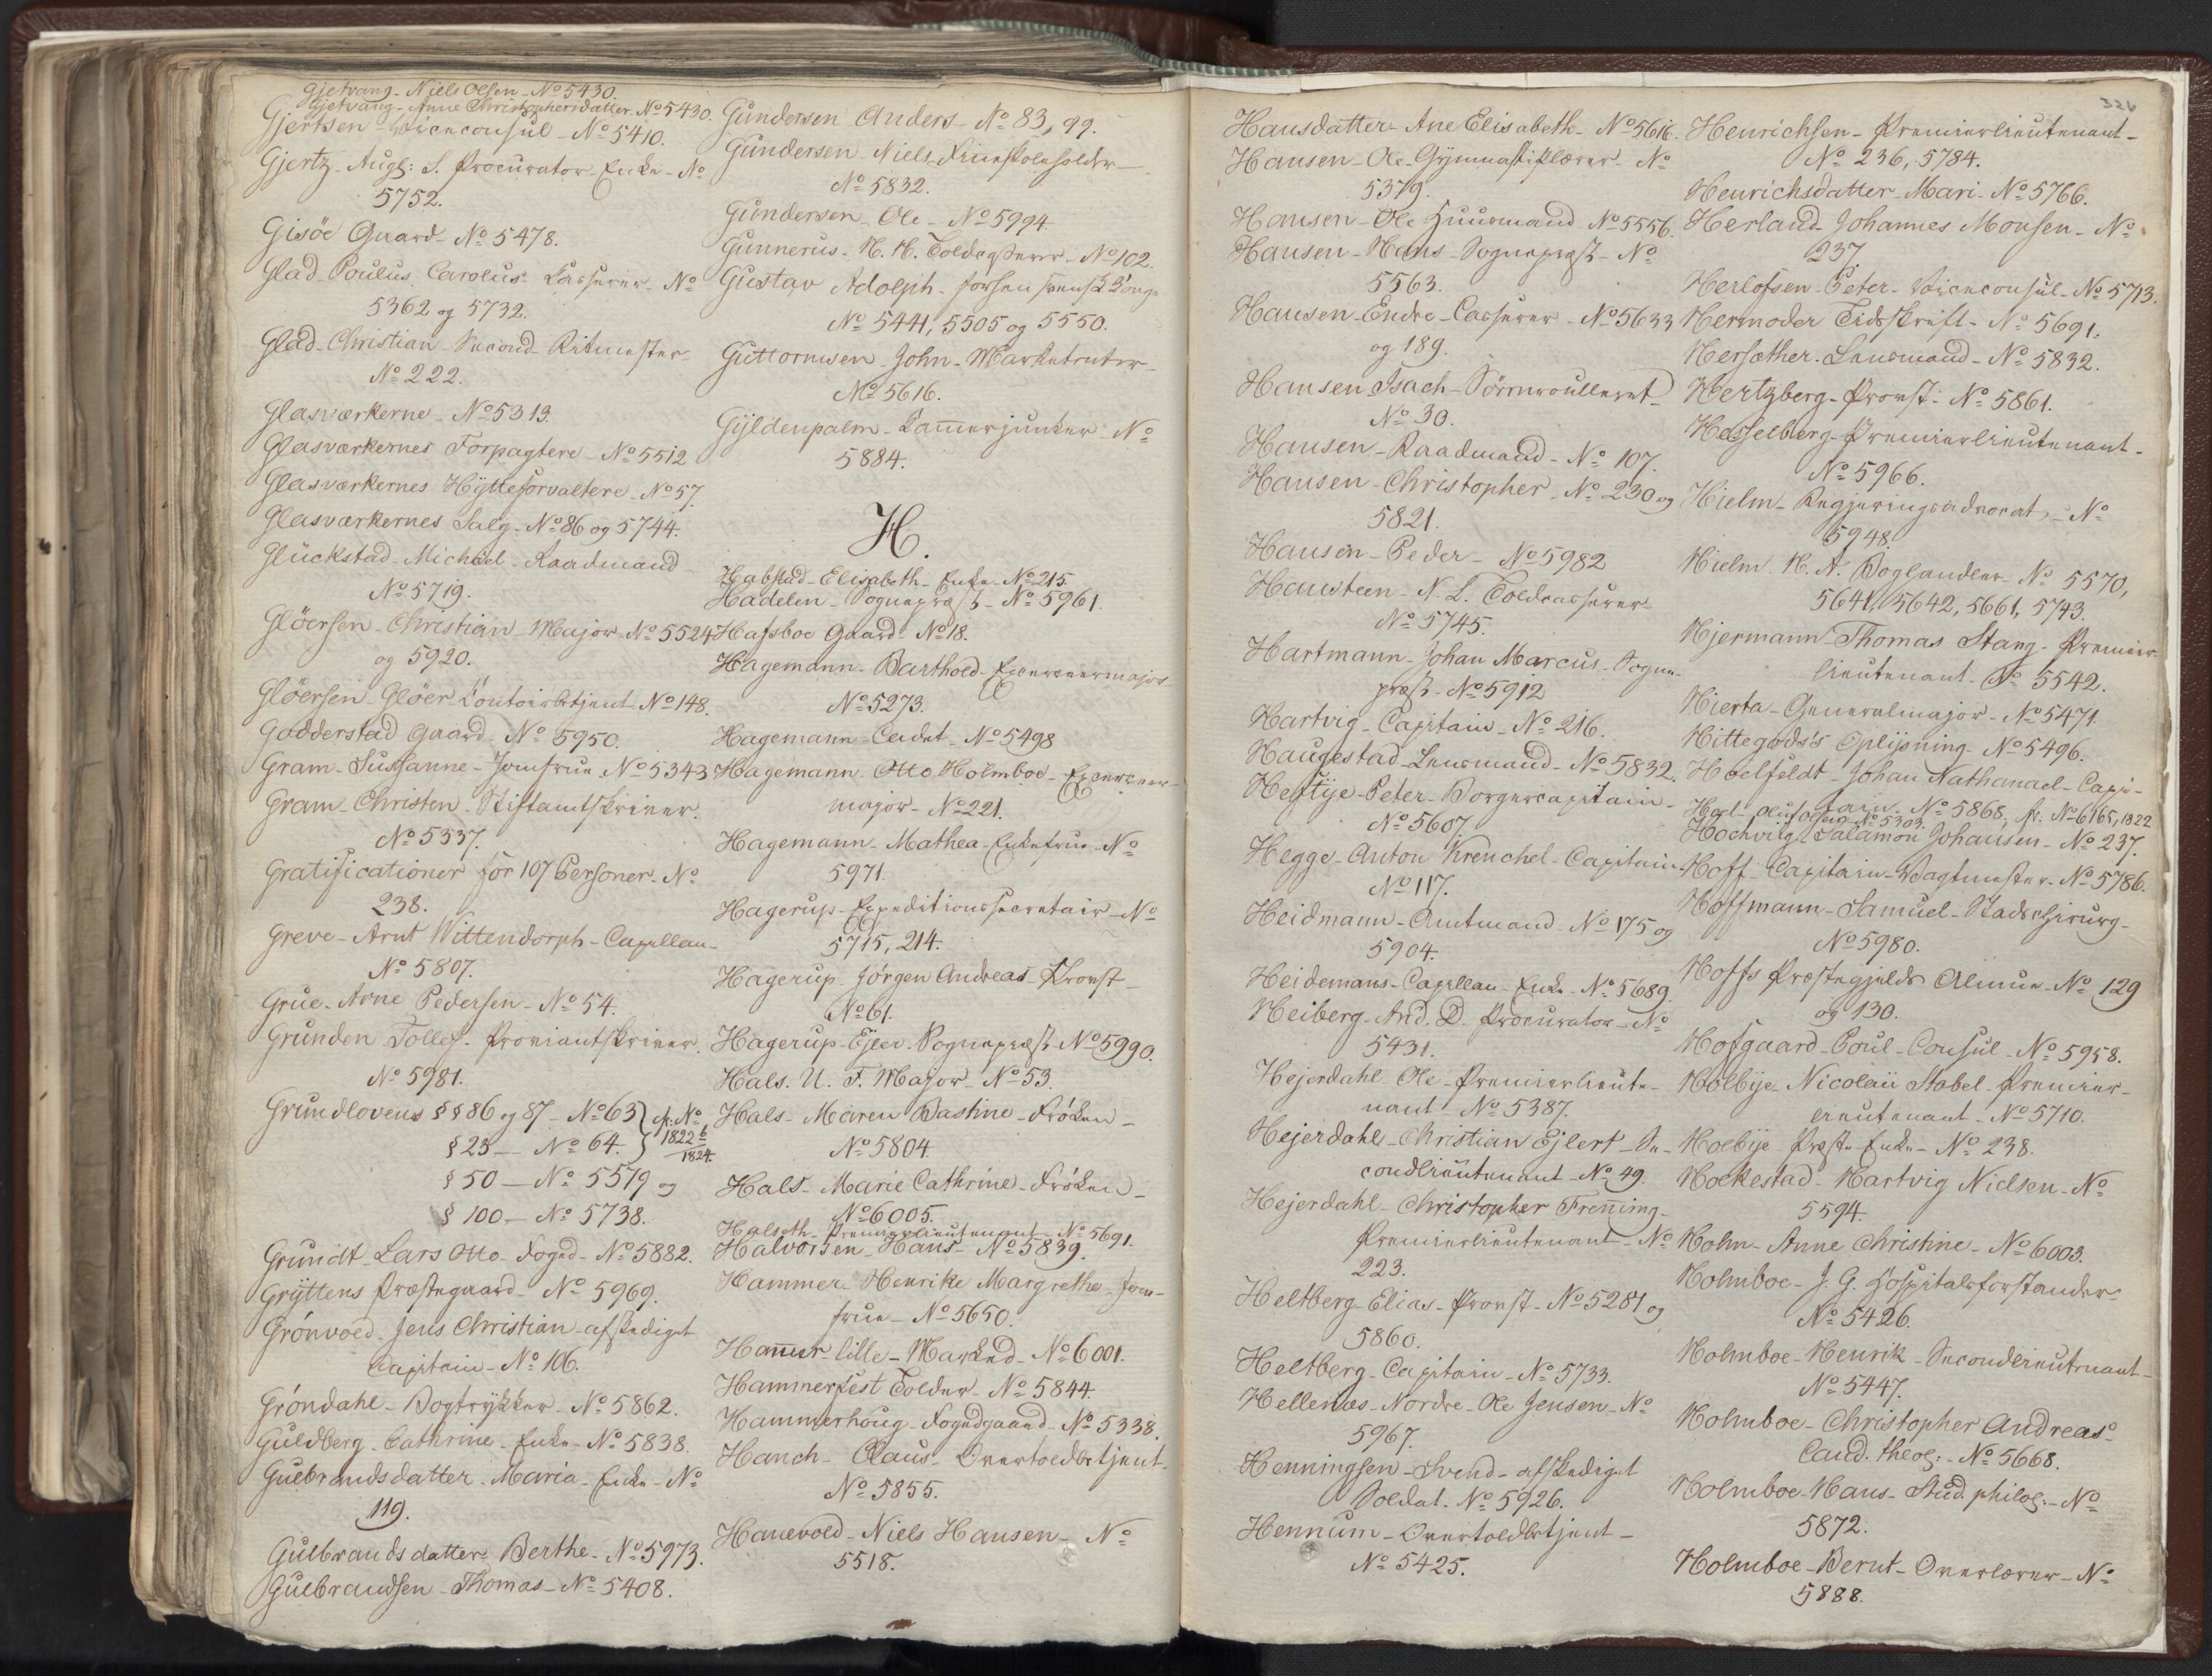 Gjetvang - Niels Olsen - No 5430.
Gjetvang - Anne Christophersdatter. No 5430.
Gjertsen - Viceconsul - No 5410.
Gjertz - Augs: S. Procurator - Enke - No
5752.
Gisöe Gaard - No 5478.
Glad - Poulus Carolus - Casserer - No
5362 og 5732.
Glad - Christian - Second Ritmester
No 222.
Glasværkerne - No 5313.
Glasværkernes Forpagtere - No 5512
Glasværkernes Hytteforvaltere - No 57.
Glasværkernes Salg - No 86 og 5744.
Glückstad - Michael - Raadmand -
No 5719.
Glöersen - Christian - Major - No 5524
og 5920.
Glöersen - Glöer - Contoirbetjent No 148.
Godderstad Gaard - No 5950.
Gram - Susanne - Jomfrue No 5343
Gram - Christen - Stiftamtskriver.
No 5337.
Gratificationer for 107 Personer - No
238.
Greve - Arnt Wittendorph - Capellan -
No 5807.
Grue - Arne Pedersen - No 54.
Grunden Tollef - Proviantskriver.
No 5981.
Grundlovens §§ 86 og 87 - No 63 } cfr. No
§ 25 - No 64. } 1822 6/1824.
§ 50 - No 5579 og
§ 100 - No 5738.
Grundt - Lars Otto - Foged - No 5882.
Gryttens Præstegaard - No 5969.
Grönvold - Jens Christian - afskediget
Capitain - No 106.
Gröndahl - Bogtrykker - No 5862.
Guldberg - Cathrine - Enke - No 5838.
Gulbrandsdatter - Maria - Enke - No
119.
Gulbrandsdatter - Berthe - No 5973.
Gulbrandsen - Thomas - No 5408.
Gundersen Anders - No 83, 99.
Gundersen - Niels - Friskoleholder -
No 5832.
Gundersen - Ole - No 5994
Gunnerus - N. H. Toldcasserer - No 102.
Gustav Adolph - forhen svensk Konge
No 5441, 5505 og 5550.
Guttormsen John - Marketenter -
No 5616.
Gyldenpalm - Kammerjunker - No
5884.
H.
Habstad - Elisabeth - Enke - No 215.
Hadelen - Sognepræst - No 5961.
Hafsboe Gaard - No 18.
Hagemann - Barthold - Exerceermajor
No 5273.
Hagemann - Cadet - No 5498
Hagemann Otto Holmboe - Exerceer-
major - No 221.
Hagemann - Mathea - Enkefrue - No
5971.
Hagerup - Expeditionssecretair - No
5715, 214.
Hagerup Jörgen Andreas - Provst -
No 61.
Hagerup - Ejler - Sognepræst No 5990.
Hals. U. F. Major - No 53.
Hals - Maren Bastine - Fröken -
No 5804.
Hals - Marie Cathrine - Fröken -
No 6005.
Halseth - Premierlieutenant - No 5691.
Halvorsen - Hans - No 5839.
Hammer - Henrike Margrethe - Jom-
frue - No 5650.
Hammer lille - Marked - No 6001.
Hammerfest Tolder - No 5844.
Hammerhoug - Fogedgaard - No 5338.
Hanch - Claus - Overtoldbetjent -
No 5855.
Hanevold - Niels Hansen - No
5518.
326
Hansdatter - Ane Elisabeth - No 5616.
Hansen - Ole - Gymnastiklærer - No
5379.
Hansen - Ole Huusmand No 5556.
Hansen - Hans - Sognepræst - No
5563.
Hansen - Endre - Casserer - No 5633
og 189.
Hansen Isach - Sörenroulleret -
No 30.
Hansen - Raadmand - No 107.
Hansen - Christopher - No 230 og
5821.
Hansen - Peder - No 5982
Hansteen - N. L. Toldcasserer -
No 5745.
Hartmann - Johan Marcus - Sogne-
præst - No 5912
Hartvig - Capitain - No 216.
Haugestad - Lensmand - No 5832.
Heftye - Peter - Borgercapitain -
No 5607.
Hegge - Anton Krenchel - Capitain
No 117.
Heidmann - Amtmand - No 175 og
5904.
Heidemans - Capellan - Enke - No 5689.
Heiberg - And. D. Procurator - No
5431.
Hejerdahl Ole - Premierlieute-
nant - No 5387.
Hejerdahl - Christian Ejlert - Se-
condlieutenant - No 49.
Hejerdahl - Christopher Frening -
Premierlieutenant - No
223.
Heltberg - Elias - Provst - No 5281 og
5860.
Heltberg - Capitain - No 5733.
Hellenæs - Nordre - Ole Jensen - No
5967.
Henningsen - Svend - afskediget
Soldat. No 5926.
Hennum - Overtoldbetjent -
No 5425.
Henrichsen - Premierlieutenant -
No 236, 5784.
Henrichsdatter - Mari - No 5766.
Herland Johannes Monsen - No
237.
Herlofsen - Peter - Viceconsul - No 5713.
Hermoder Tidsskrift - No 5691.
Hersæther - Lensmand - No 5832.
Hertzberg - Provst - No 5861.
Hesselberg - Premierlieutenant -
No 5966.
Hielm - Regjeringsadvocat - No
5948.
Hielm. H. A. Boghandler - No 5570,
5641, 5642, 5661, 5743.
Hjermann - Thomas Stang - Premier-
lieutenant - No 5542.
Hierta - Generalmajor - No 5471.
Hittegods's Oplysning - No 5496.
Hoelfeldt - Johan Nathanael - Capi-
tain - No 5868, fr. No 6165, 1822
Hoel - Oluf Olsen No 5303.
Hochvig Salamon Johansen - No 237.
Hoff - Capitain - Vagtmester - No 5786.
Hoffmann - Samuel - Stadschirurg -
No 5980.
Hoffs Præstegjelds Almue - No 129
og 130.
Hofgaard - Poul - Consul - No 5958.
Holbye - Nicolaii Stabel - Premier-
lieutenant - No 5710.
Holbye - Præste Enke - No 238.
Hockestad - Hartvig Nielsen - No
5594.
Holm - Anne Christine - No 6003.
Holmboe - J. G. Hospitalsforstander -
No 5426.
Holmboe - Henrik - Secondlieutenant -
No 5447.
Holmboe - Christopher Andreas -
Cand. theol: - No 5668.
Holmboe - Hans - Stud. philol. - No
5872.
Holmboe - Bernt - Overlærer - No
5888.